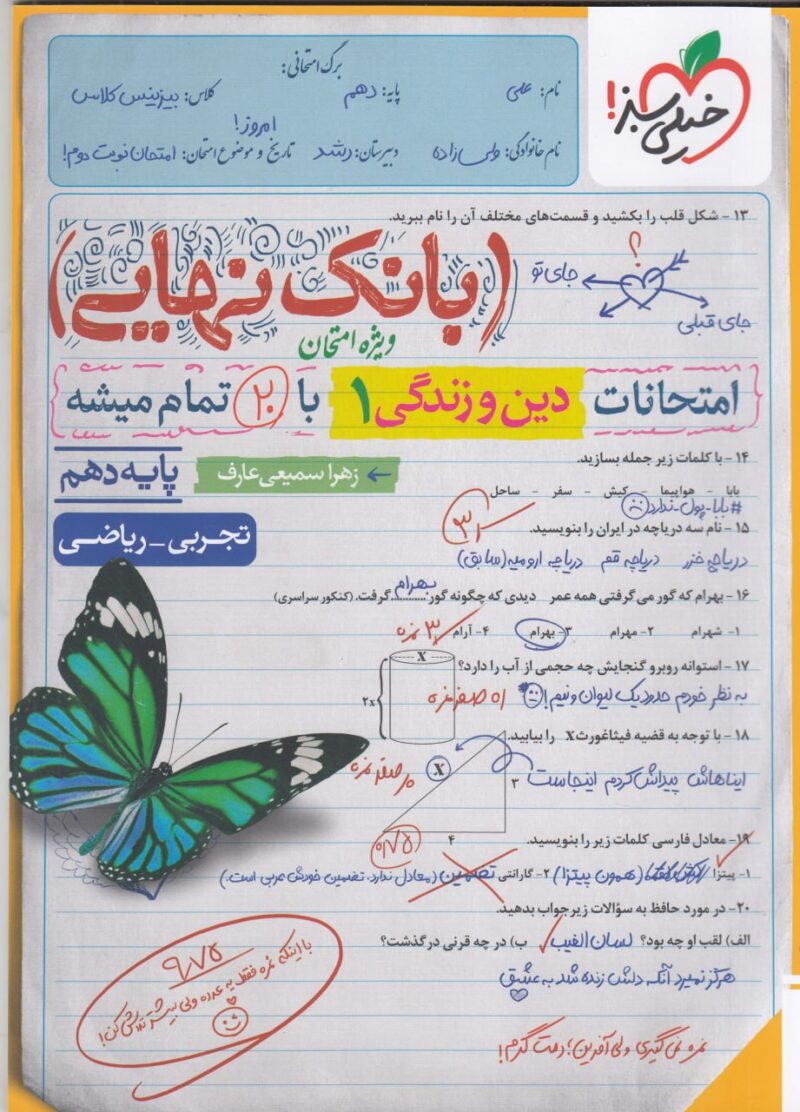 خیلی سبز!
برگ امتحانی:
نام: علی پایه: دهم کلاس: بیزینس کلاس
امروز!
نام خانوادگی: ولی زاده دبیرستان: رشد تاریخ و موضوع امتحان: امتحان نوبت دوم!
۱۳ - شکل قلب را بکشید و قسمت‌های مختلف آن را نام ببرید.
؟
جای تو
جای قبلی
(بانک نهایی)
ویژه امتحان
امتحانات دین و زندگی ۱ با ۲۰ تمام میشه
۱۴ - با کلمات زیر جمله بسازید.
زهرا سمیعی عارف
پایه دهم
بابا - هواپیما - کیش - سفر - ساحل
#بابا_پول_ندارد
۱۵ - نام سه دریاچه در ایران را بنویسید.
۳
تجربی - ریاضی
دریاچه خزر دریاچه قم دریاچه ارومیه (سابق)
۱۶ - بهرام که گور می‌گرفتی همه عمر دیدی که چگونه گور بهرام گرفت. (کنکور سراسری)
۱- شهرام ۲- مهرام ۳- بهرام ۴- آرام
۱۷ - استوانه روبرو گنجایش چه حجمی از آب را دارد؟
X
۲x
به نظر خودم حدود یک لیوان و نیم!
۱۸ - با توجه به قضیه فیثاغورث X را بیابید.
ایناهاش پیداش کردم اینجاست
X
۳
۴
۱۹ - معادل فارسی کلمات زیر را بنویسید.
۰/۷۵
۱- پیتزا (همون پیتزا) ۲- گارانتی تضمین (معادل ندارد. تضمین خودش عربی است.)
۲۰ - در مورد حافظ به سؤالات زیر جواب بدهید.
الف) لقب او چه بود؟ لسان الغیب ب) در چه قرنی درگذشت؟
هرگز نمیرد آنکه دلش زنده شد به عشق
۹/۷۵
با اینکه نمره فقط یه عدده ولی بیشتر تلاش کن!
نمره نمی‌گیری ولی آفرین؛ دمت گرم!